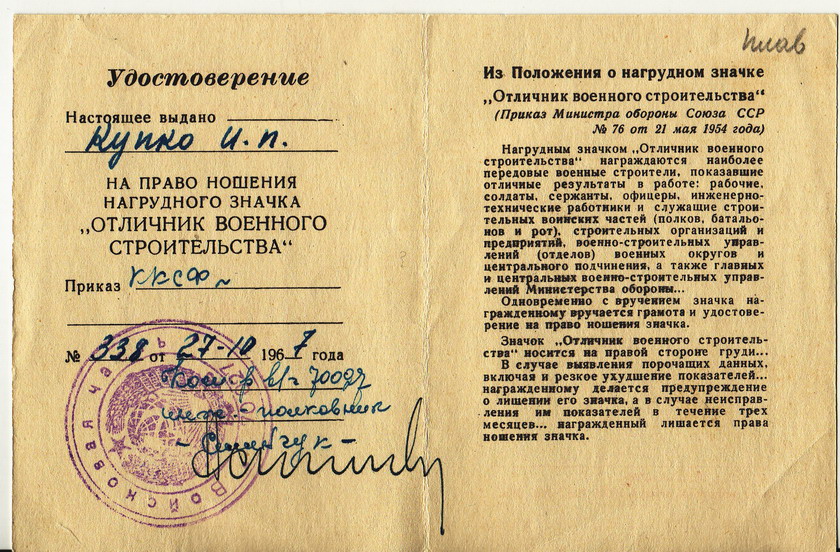 Удостоверение
Настоящее выдано
Купко И. П.
НА ПРАВО НОШЕНИЯ
НАГРУДНОГО ЗНАЧКА
„ОТЛИЧНИК ВОЕННОГО
СТРОИТЕЛЬСТВА“
Приказ ККСФ
№ 338 от 27-10 1967 года
полковник
Войсковая часть
плав
Из Положения о нагрудном значке
„Отличник военного строительства“
(Приказ Министра обороны Союза ССР
№ 76 от 21 мая 1954 года)
Нагрудным значком „Отличник военного
строительства“ награждаются наиболее
передовые военные строители, показавшие
отличные результаты в работе: рабочие,
солдаты, сержанты, офицеры, инженерно-
технические работники и служащие строи-
тельных воинских частей (полков, батальо-
нов и рот), строительных организаций и
предприятий, военно-строительных управ-
лений (отделов) военных округов и
центрального подчинения, а также главных
и центральных военно-строительных управ-
лений Министерства обороны...
Одновременно с вручением значка на-
гражденному вручается грамота и удостове-
рение на право ношения значка.
Значок „Отличник военного строитель-
ства“ носится на правой стороне груди...
В случае выявления порочащих данных,
включая и резкое ухудшение показателей...
награжденному делается предупреждение
о лишении его значка, а в случае неисправ-
ления им показателей в течение трех
месяцев... награжденный лишается права
ношения значка.